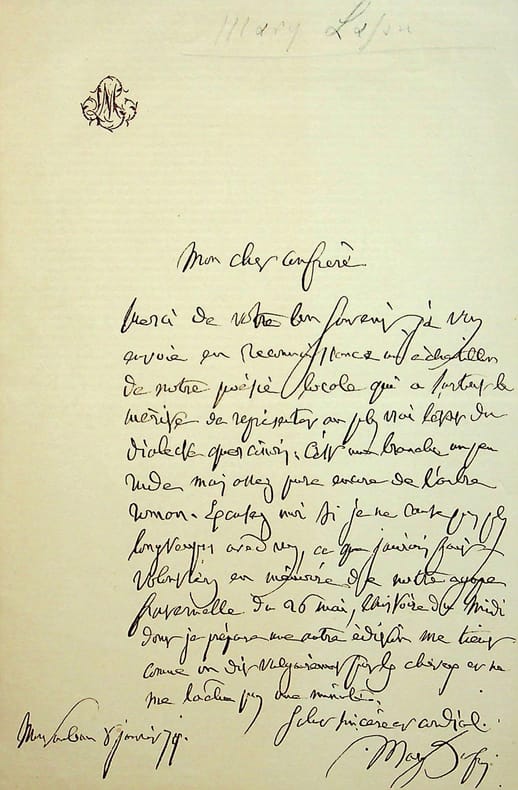 Mary Lafon
Mon cher confrère
Merci de votre bon souvenir, je vous
envoie en reconnaissance un échantillon
de notre poésie locale qui a surtout le
mérite de représenter au plus vrai l'état du
dialecte quercinois. C'est une branche un peu
rude mais assez pure encore de l'arbre
roman. Excusez moi si je ne cause pas plus
longtemps avec vous, ce que j'aurois fait
volontiers en mémoire de notre agape
fraternelle du 26 mai, l'histoire du Midi
dont je prépare une autre édition me tient
comme on dit vulgairement par les cheveux et ne
me lâche pas une minute.
Salut sincère et cordial.
Montauban 8 janvier 79.
Mary Lafon